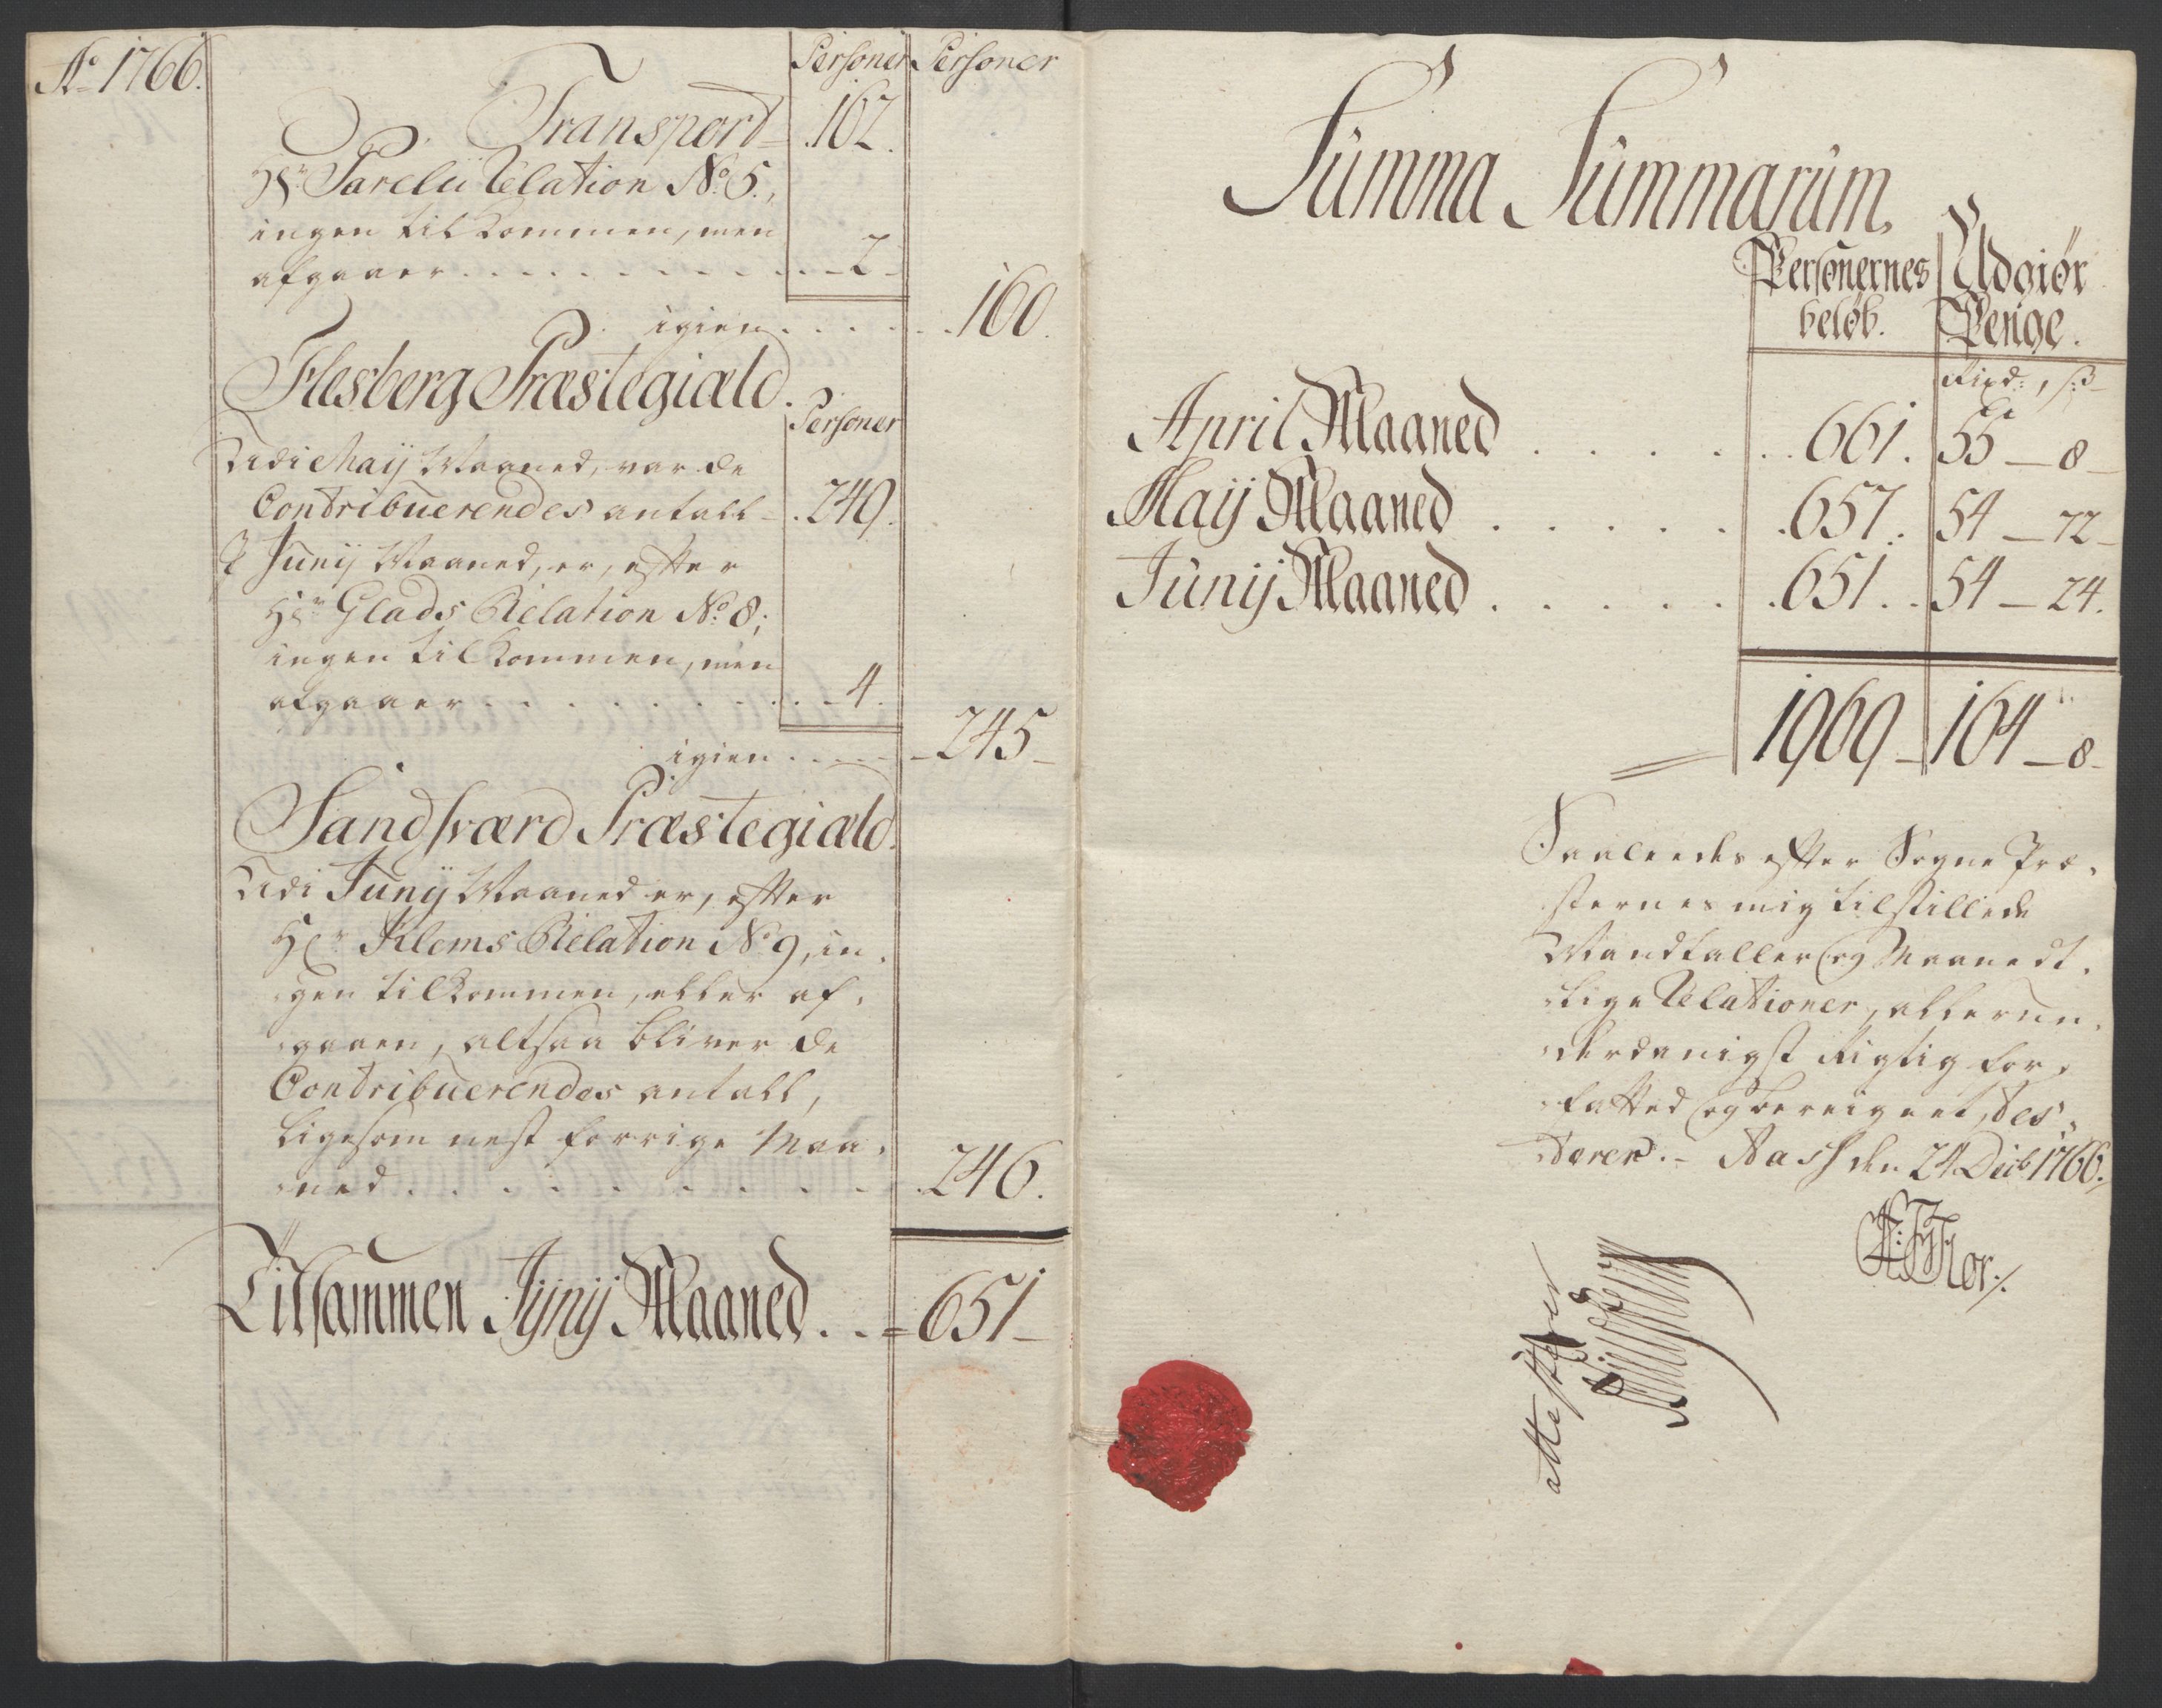 Ao 1766.
Personer Personer
Transport 162.
Hr. Parelii Relation No. 5.,
ingen tilkommen, men
afgaaer . . . . . . . . . 2
igien . . . . . . 160.
Flesberg Præstegiæld.
Personer
Udi Maij Maaned, var de
Contribuerendes antall 249.
I Junij Maaned, er, efter
Hr. Glads Relation No. 8;
ingen tilkommen, men
afgaaer . . . . . . . . . 4.
igien . . . . . 245
Sandsværd Præstegiæld.
Udi Junij Maaned er, efter
Hr. Klems Relation No. 9, in-
gen tilkommen, eller af-
gaaen, altsaa bliver de
Contribuerendes antall,
ligesom nest forrige Maa-
ned . . . . . . . . . 246.
Tilsammen Junij Maaned . . = 651
Summa Summarum.
Personernes Udgiør
beløb. Penge.
Rixd: , ß
April Maaned . . . . . . 661. 55 — 8
Maij Maaned . . . . . . 657. 54 — 72
Junij Maaned . . . . . . 651. 54 — 24.
1969 164 — 8
Saaledes efter Sogne Præ-
sternes mig tilstillede
Mandtaller og Maanedt-
lige Relationer, allerun-
derdanigst Rigtig for-
fatted og bereignet, Tes-
terer. Aass den 24 Decb 1766.
Flor./.
attesterer